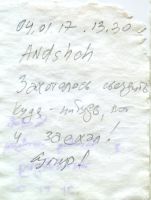 04.01.17. 13.30
Andshoh
Захотелось съездить
куда-нибудь, вот
и заехал!